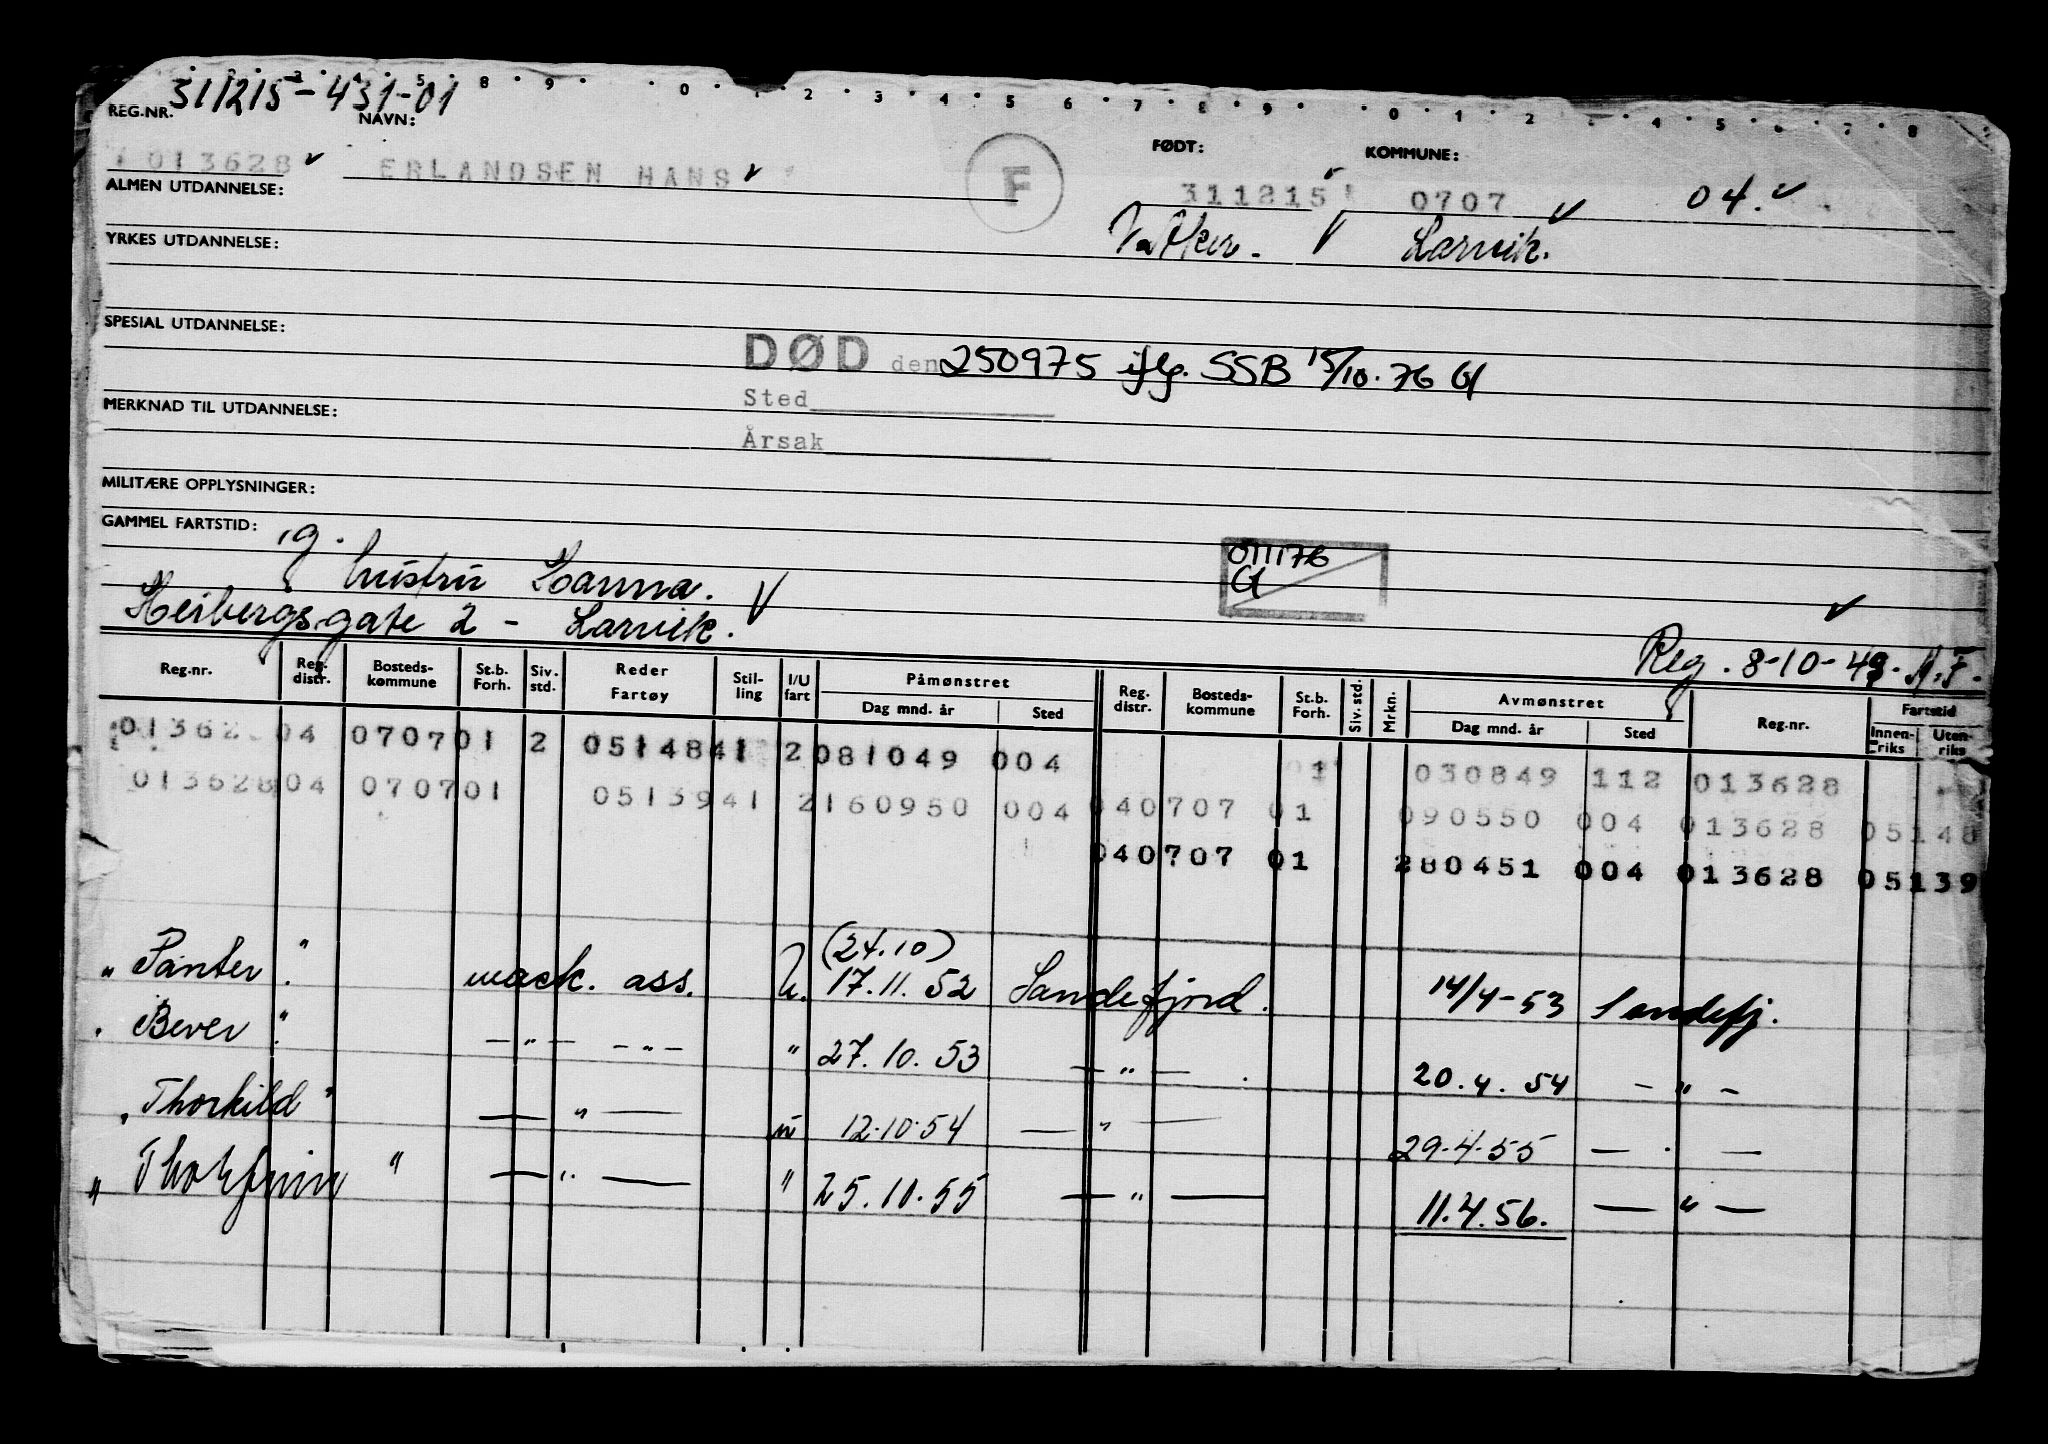 311215-431-01
REG.NR.
NAVN:
FØDT:
KOMMUNE:
013628 ✓ ERLANDSEN HANS ✓ F 311215 0707 ✓ 04. ✓
ALMEN UTDANNELSE:
Larvik.
YRKES UTDANNELSE:
SPESIAL UTDANNELSE:
DØD den 250975 iflg. SSB 15/10.76 Gl
Sted
MERKNAD TIL UTDANNELSE:
Årsak
MILITÆRE OPPLYSNINGER:
GAMMEL FARTSTID:
g. hustru Hanna. ✓
011176
Gl
Heibergsgate 2 - Larvik.
Reg. 8-10-49. A.F.
Reg.nr. Reg. distr. Bosteds-kommune St.b. Forh. Siv. std. Reder Fartøy Stil-ling I/U fart Påmønstret Dag mnd. år Sted Reg. distr. Bosteds-kommune St.b. Forh. Siv. std. Mrkn. Avmønstret Dag mnd. år Sted Reg.nr. Fartstid Innen-riks Uten-riks
01362 04 0707 01 2 05148 41 2 081049 004 1 030849 112 013628
013628 04 0707 01 05139 41 2 160950 004 04 0707 01 090550 004 013628 05148
04 0707 01 280451 004 013628 05139
(24.10)
" Panter " mask. ass. U. 17.11.52 Sandefjord. 14/4-53 Sandefj.
" Bever " — " — — " — " 27.10.53 — " — 20.4.54 — " —
" Thorkild " — " — u 12.10.54 — " — 29.4.55 — " —
" Thorfinn " — " — " 25.10.55 — " — 11.4.56. — " —